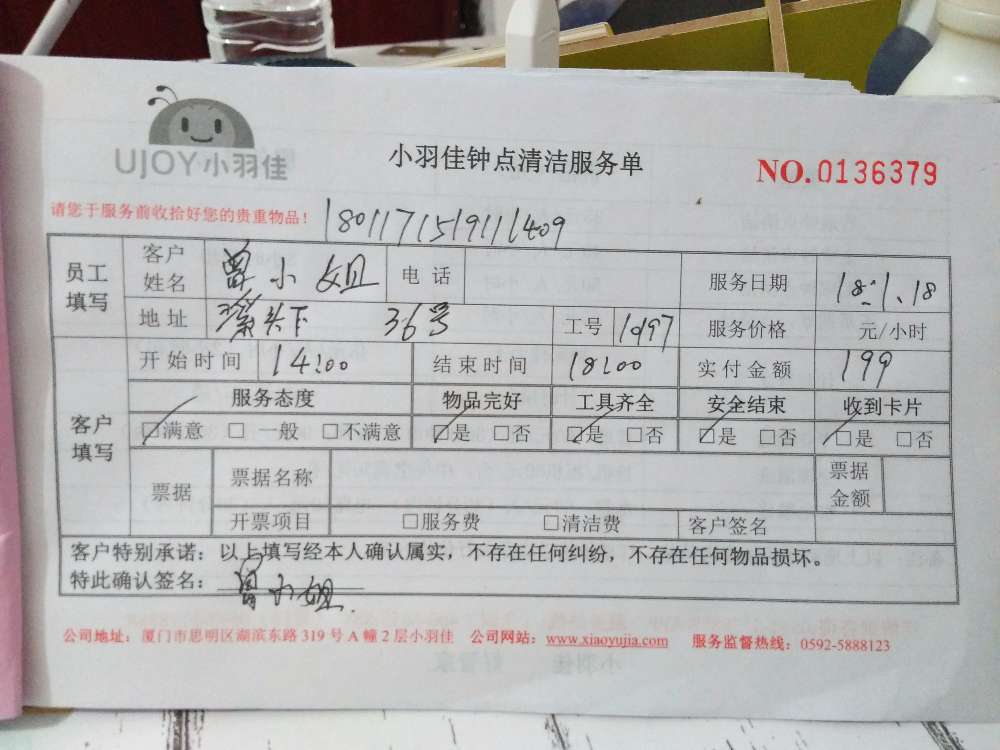 UJOY小羽佳
小羽佳钟点清洁服务单
NO.0136379
请您于服务前收拾好您的贵重物品！
180117151911409
员工填写 客户姓名 曾小姐 电话 服务日期 18.1.18
地址 溪头下 36号 工号 1097 服务价格 元/小时
客户填写 开始时间 14:00 结束时间 18:00 实付金额 199
服务态度 物品完好 工具齐全 安全结束 收到卡片
☑满意 □一般 □不满意 ☑是 □否 ☑是 □否 ☑是 □否 ☑是 □否
票据 票据名称 票据金额
开票项目 □服务费 □清洁费 客户签名
客户特别承诺：以上填写经本人确认属实，不存在任何纠纷，不存在任何物品损坏。
特此确认签名：曾小姐
公司地址：厦门市思明区湖滨东路319号A幢2层小羽佳 公司网站：www.xiaoyujia.com 服务监督热线：0592-5888123